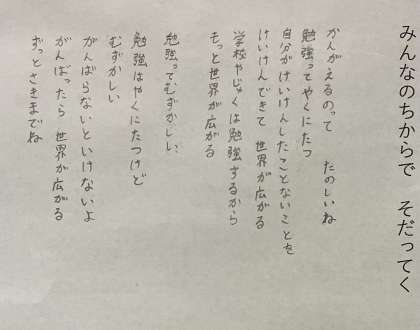 みんなのちからで　そだってく
かんがえるのって　たのしいね
勉強ってやくにたつ
自分がけいけんしたことないことを
けいけんできて　世界が広がる
学校やじゅくは勉強するから
もっと世界が広がる
勉強ってむずかしい、
勉強はやくにたつけど
むずかしい
がんばらないといけないよ
がんばったら　世界が広がる
ずっとさきまでね